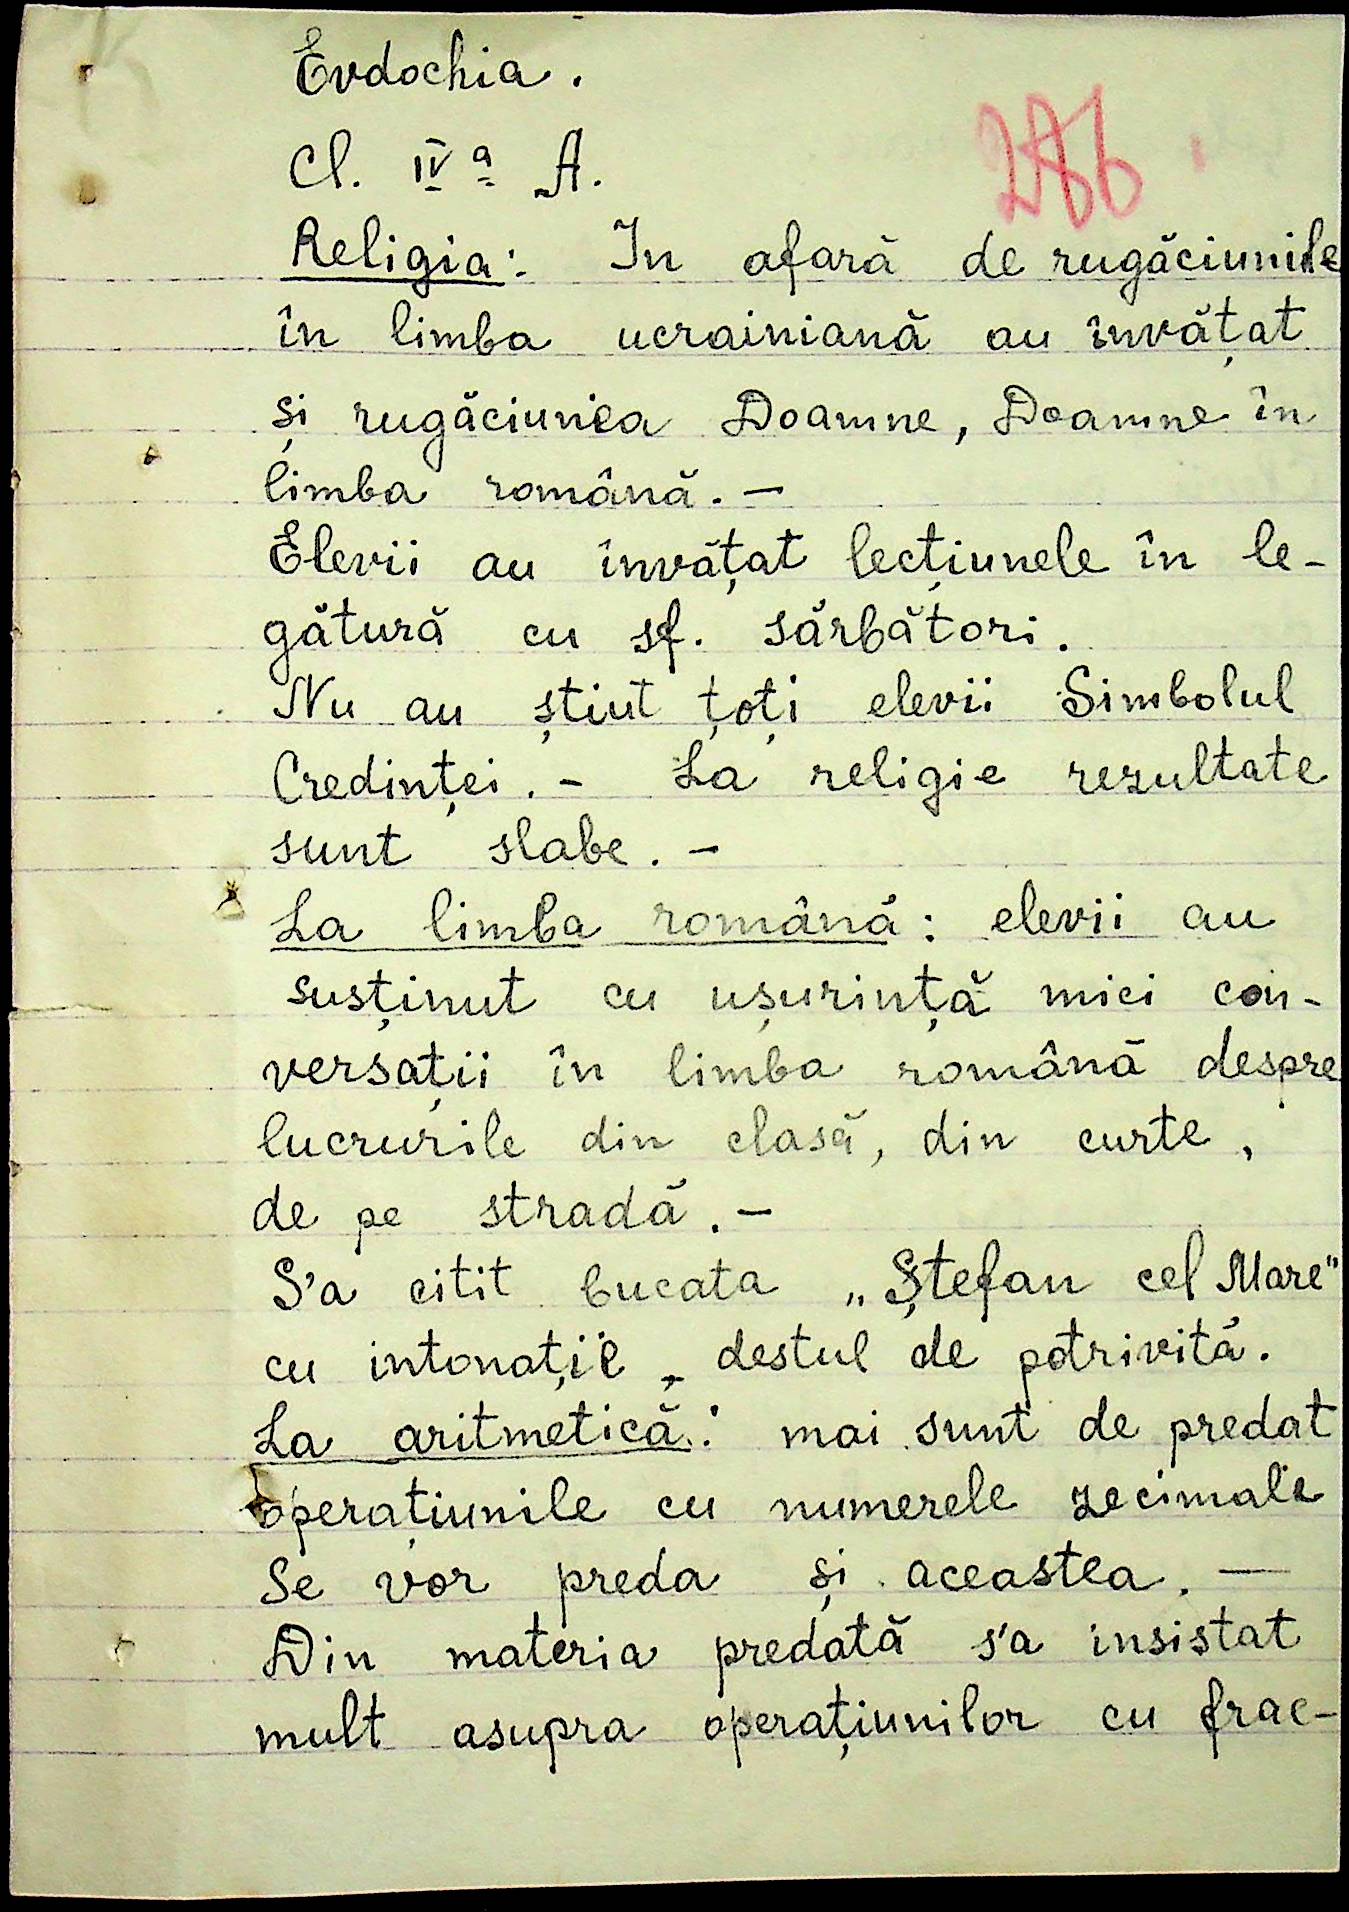 Evdochia.
286
Cl. IV a A.
Religia: In afară de rugăciunile
în limba ucrainiană au învățat
și rugăciunea Doamne, Doamne în
limba română. –
Elevii au învățat lecțiunele în le-
gătură cu sf. sărbători.
Nu au știut toți elevii Simbolul
Credinței. – La religie rezultate
sunt slabe. –
La limba română: elevii au
susținut cu ușurință mici con-
versații în limba română despre
lucrurile din clasă, din curte,
de pe stradă. –
S'a citit bucata „Ștefan cel Mare"
cu intonație, destul de potrivită.
La aritmetică: mai sunt de predat
operațiunile cu numerele zecimale
Se vor preda și aceastea. —
Din materia predată s'a insistat
mult asupra operațiunilor cu frac-